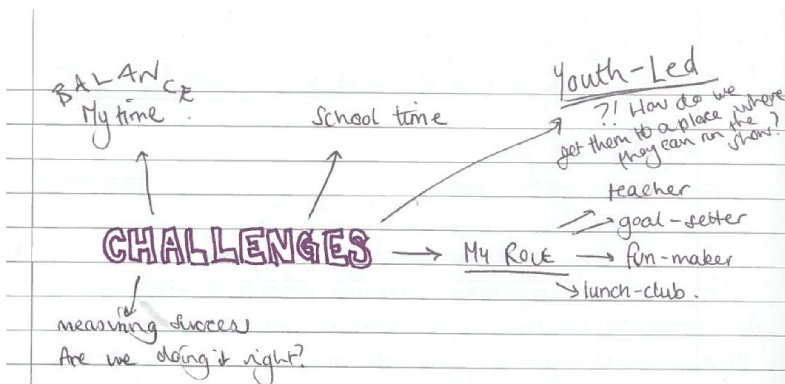 BALANCE
My time
School time
Youth-Led
?! How do we
get them to a place where
they can run the
show?
CHALLENGES
My ROLE
teacher
goal-setter
fun-maker
lunch-club.
measuring success
Are we doing it right?